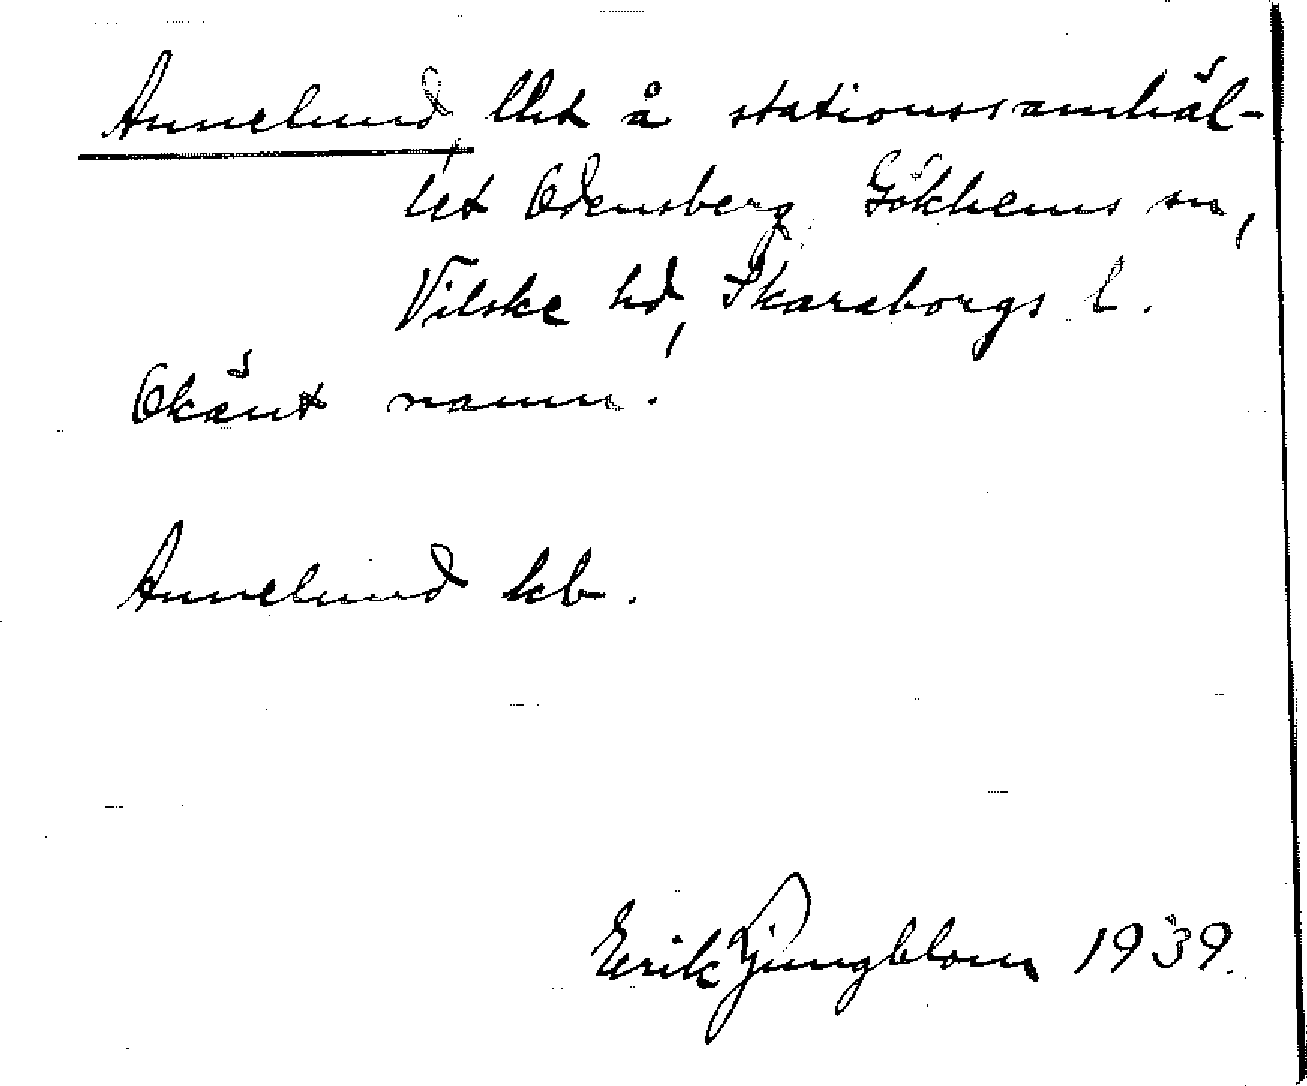 Annelund, lht å stationssamhäl-
let Odensberg Gökhems sn,
Vilske hd, Skaraborgs l.
Okänt namn.
Annelund kb.
Erik Ljungblom 1939.